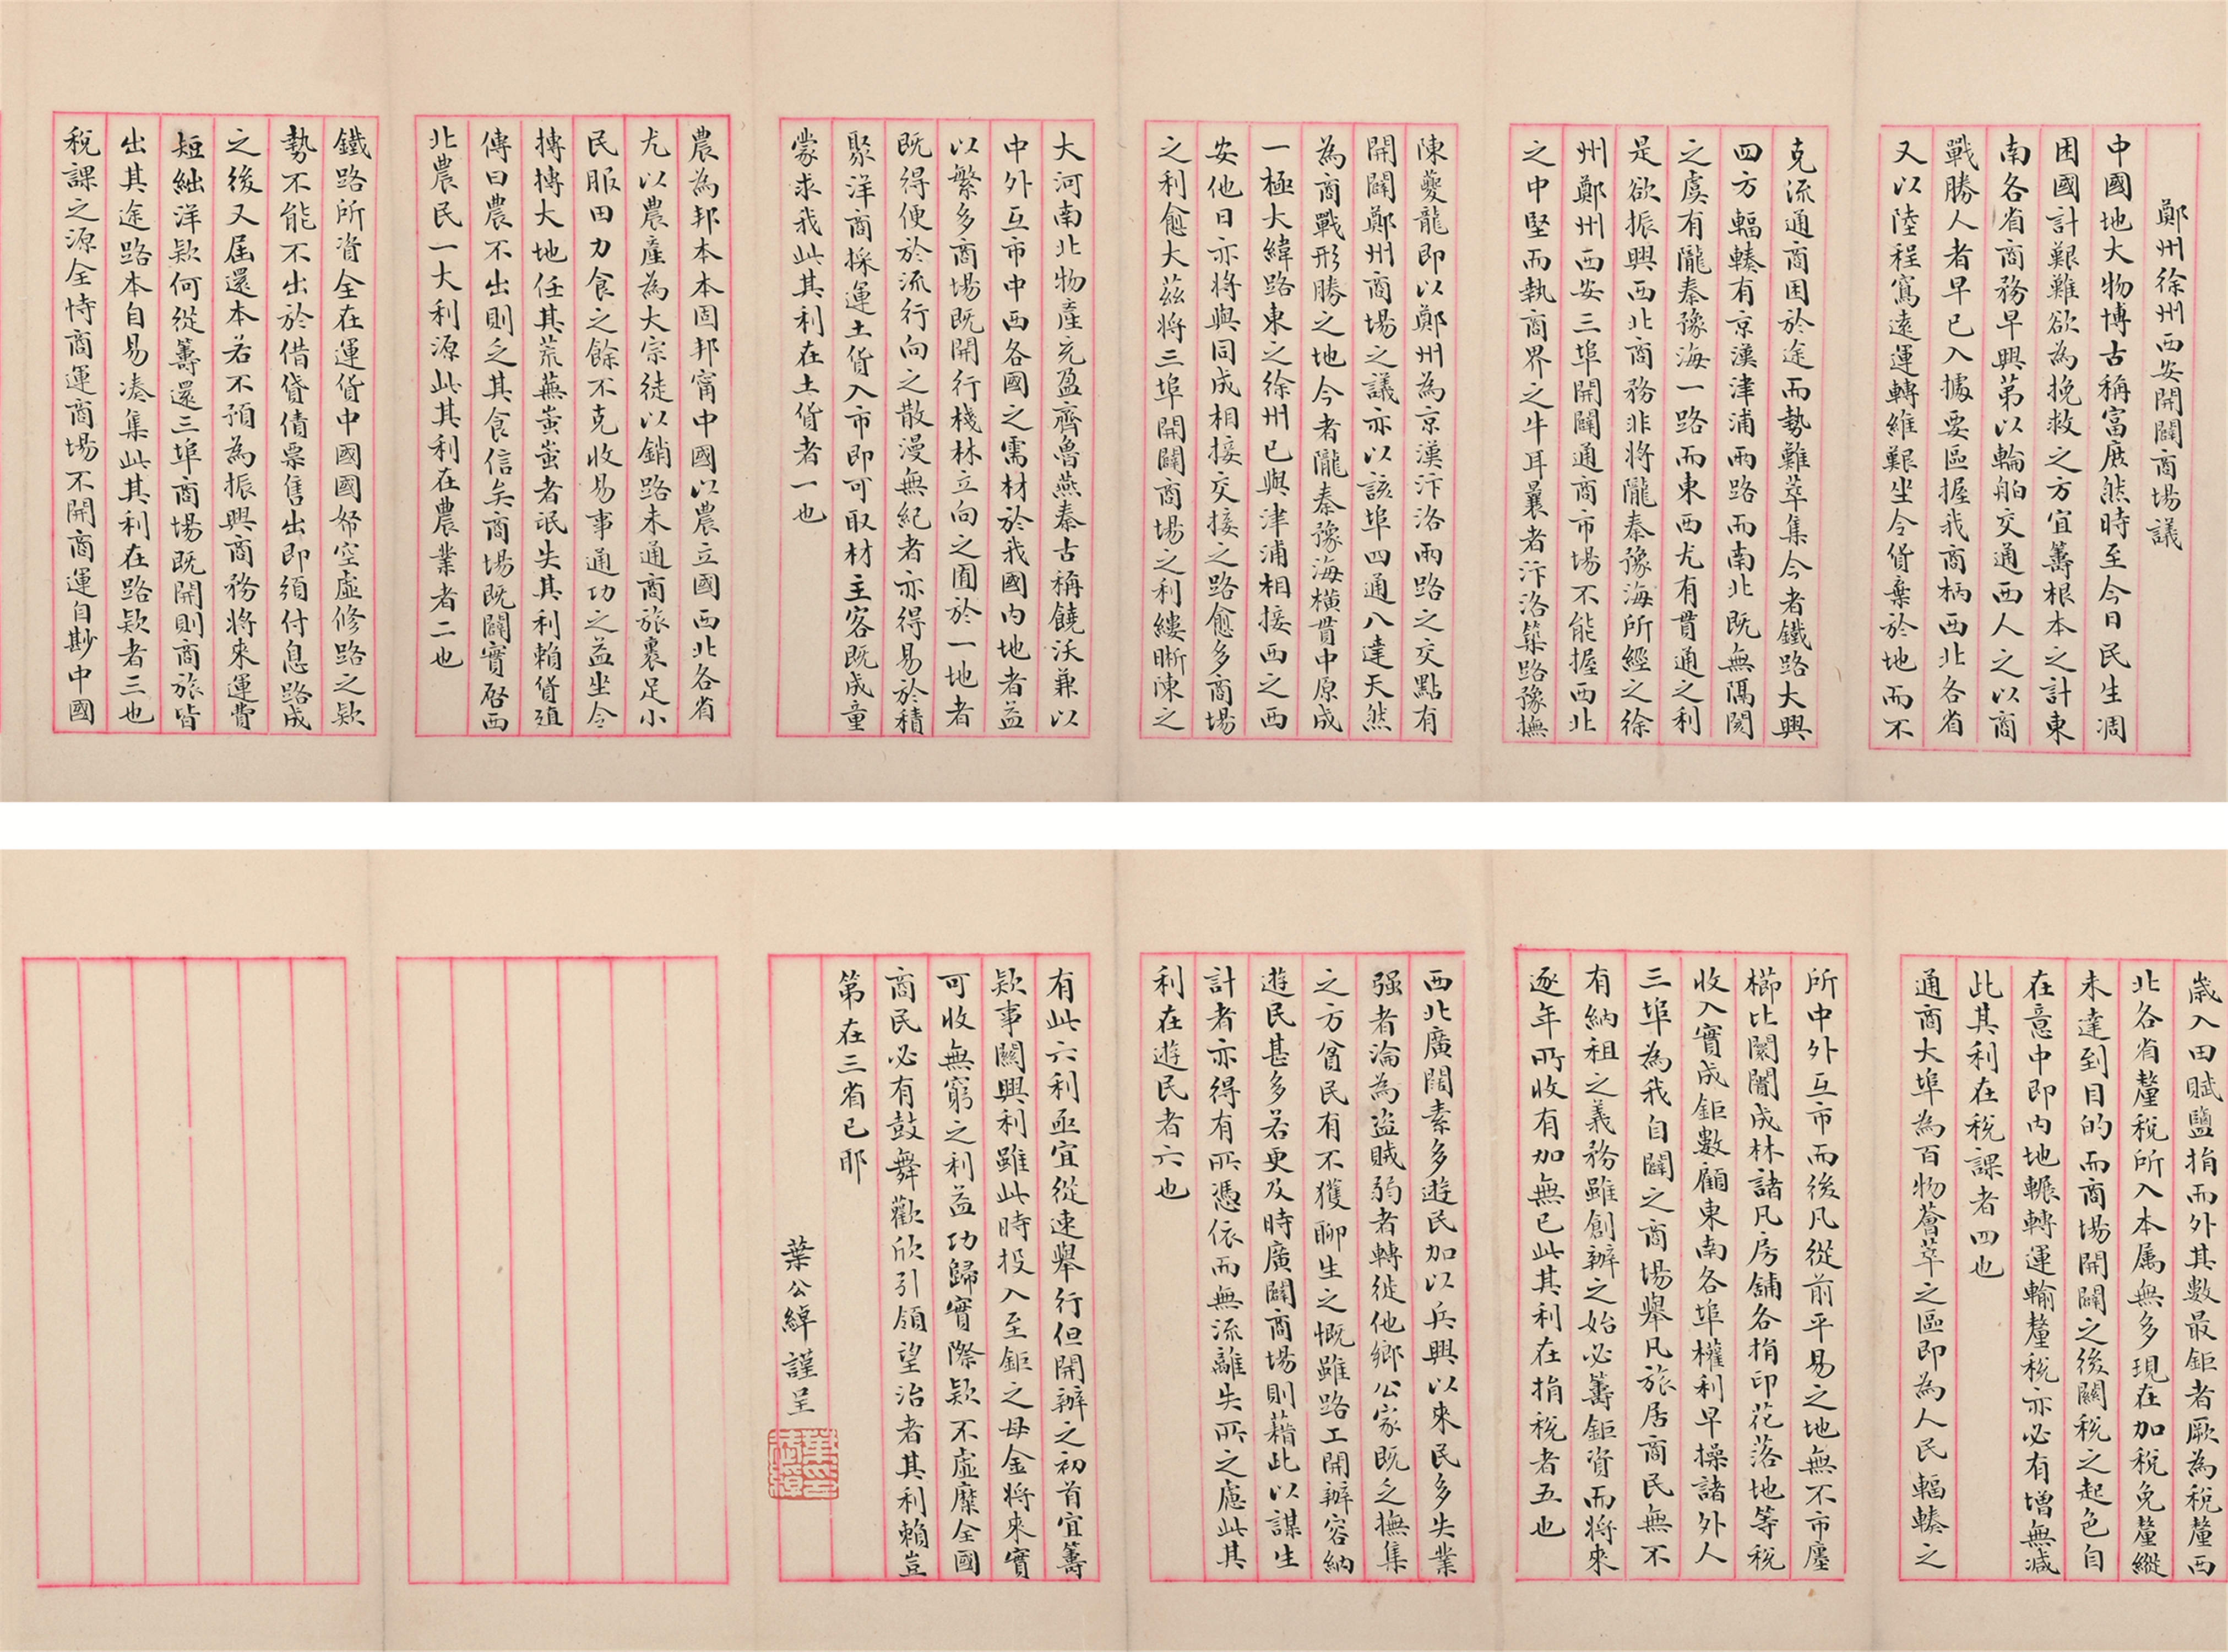 鄭州徐州西安開闢商場議
中國地大物博古稱富庶然時至今日民生凋
困國計艱難欲為挽救之方宜籌根本之計東
南各省商務早興第以輪舶交通西人之以商
戰勝人者早已入據要區握我商柄西北各省
又以陸程窵遠運轉維艱坐令貨棄於地而不
克流通商困於途而勢難萃集今者鐵路大興
四方輻輳有京漢津浦兩路而南北既無隔閡
之虞有隴秦豫海一路而東西尤有貫通之利
是欲振興西北商務非將隴秦豫海所經之徐
州鄭州西安三埠開闢通商市場不能握西北
之中堅而執商界之牛耳曩者汴洛築路豫撫
陳夔龍即以鄭州為京漢汴洛兩路之交點有
開闢鄭州商場之議亦以該埠四通八達天然
為商戰形勝之地今者隴秦豫海橫貫中原成
一極大緯路東之徐州已與津浦相接西之西
安他日亦將與同成相接交接之路愈多商場
之利愈大茲將三埠開闢商場之利縷晰陳之
大河南北物產充盈齊魯燕秦古稱饒沃兼以
中外互市中西各國之需材於我國內地者益
以繁多商場既開行棧林立向之囿於一地者
既得便於流行向之散漫無紀者亦得易於積
聚洋商採運土貨入市即可取材主客既成童
蒙求我此其利在土貨者一也
農為邦本本固邦甯中國以農立國西北各省
尤以農產為大宗徒以銷路未通商旅裹足小
民服田力食之餘不克收易事通功之益坐令
摶摶大地任其荒蕪蚩蚩者氓失其利賴貨殖
傳曰農不出則乏其食信矣商場既闢實啓西
北農民一大利源此其利在農業者二也
鐵路所資全在運貨中國國帑空虛修路之欵
勢不能不出於借貸債票售出即須付息路成
之後又屆還本若不預為振興商務將來運費
短絀洋欵何從籌還三埠商場既開則商旅皆
出其途路本自易湊集此其利在路欵者三也
稅課之源全恃商運商場不開商運自尠中國
歲入田賦鹽捐而外其數最鉅者厥為稅釐西
北各省釐稅所入本属無多現在加稅免釐縱
未達到目的而商場開闢之後關稅之起色自
在意中即內地輾轉運輸釐稅亦必有增無減
此其利在稅課者四也
通商大埠為百物薈萃之區即為人民輻輳之
所中外互市而後凡從前平易之地無不市廛
櫛比闤闠成林諸凡房舖各捐印花落地等稅
收入實成鉅數顧東南各埠權利早操諸外人
三埠為我自闢之商場舉凡旅居商民無不
有納租之義務雖創辦之始必籌鉅資而將來
逐年所收有加無已此其利在捐稅者五也
西北廣闊素多遊民加以兵興以來民多失業
强者淪為盜賊弱者轉徙他鄉公家既乏撫集
之方貧民有不獲聊生之慨雖路工開辦容納
遊民甚多若更及時廣闢商場則藉此以謀生
計者亦得有所憑依而無流離失所之慮此其
利在遊民者六也
有此六利亟宜從速舉行但開辦之初首宜籌
欵事關興利雖此時投入至鉅之母金將來實
可收無窮之利益功歸實際欵不虛糜全國
商民必有鼓舞歡欣引領望治者其利賴豈
第在三省已耶
葉公綽謹呈